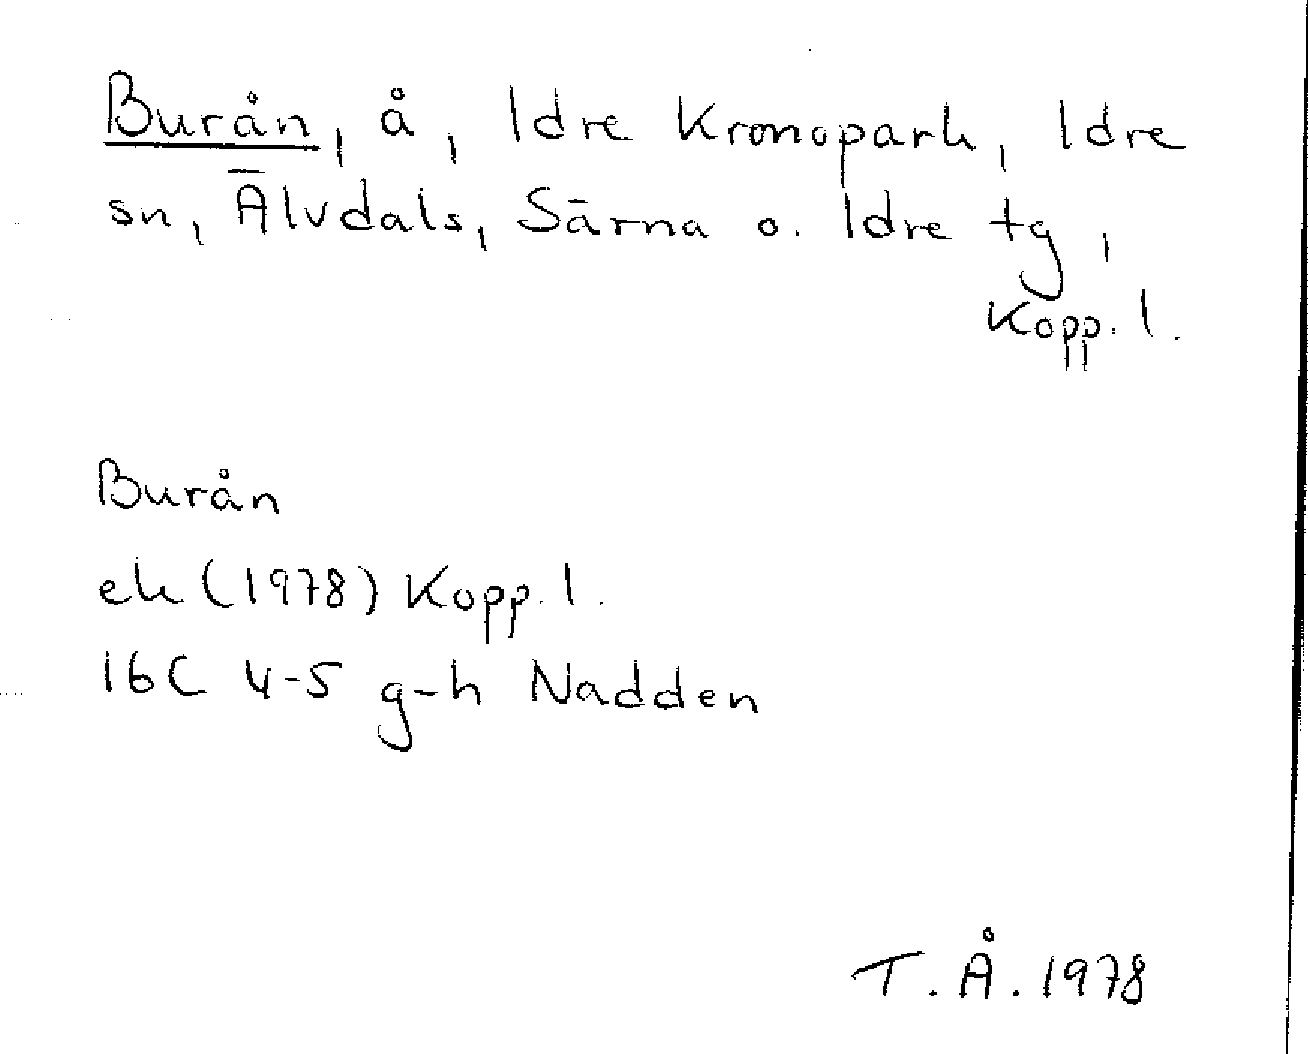 Burån, å, Idre Kronopark, Idre
sn, Älvdals, Särna o. Idre tg,
Kopp. l.
Burån
ek (1978) Kopp. l.
16C 4-5 g-h Nädden
T. Å. 1978